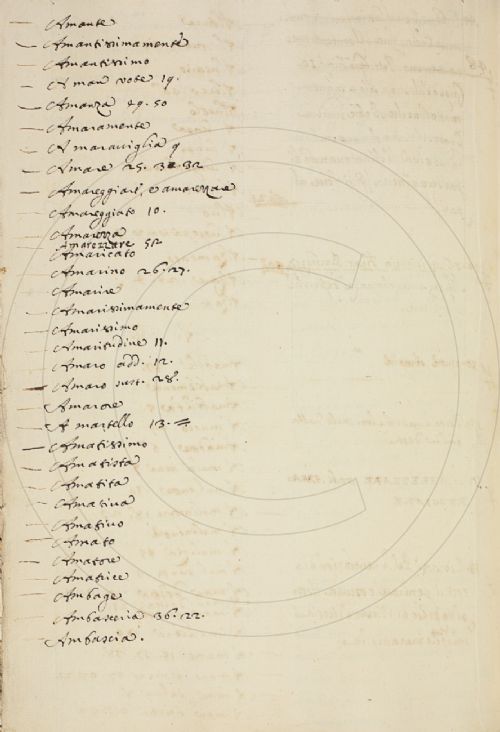 Amante
Amantissimamente
Amantissimo
A man vote 19.
Amanza 49. 50
Amaramente
A maraviglia 9
Amare 25. 32
Amareggiare, e amarezzare
Amareggiato 10.
Amarezza
Amarezzare 52
Amaricato
Amarino 26. 27.
Amarire
Amarissimamente
Amarissimo
Amaritudine 11.
Amaro add. 12.
Amaro sust. 28.
Amarore
A martello 13.
Amatissimo
Amatista
Amatita
Amativa
Amativo
Amato
Amatore
Amatrice
Ambage
Ambasceria 36. 22.
Ambascia.